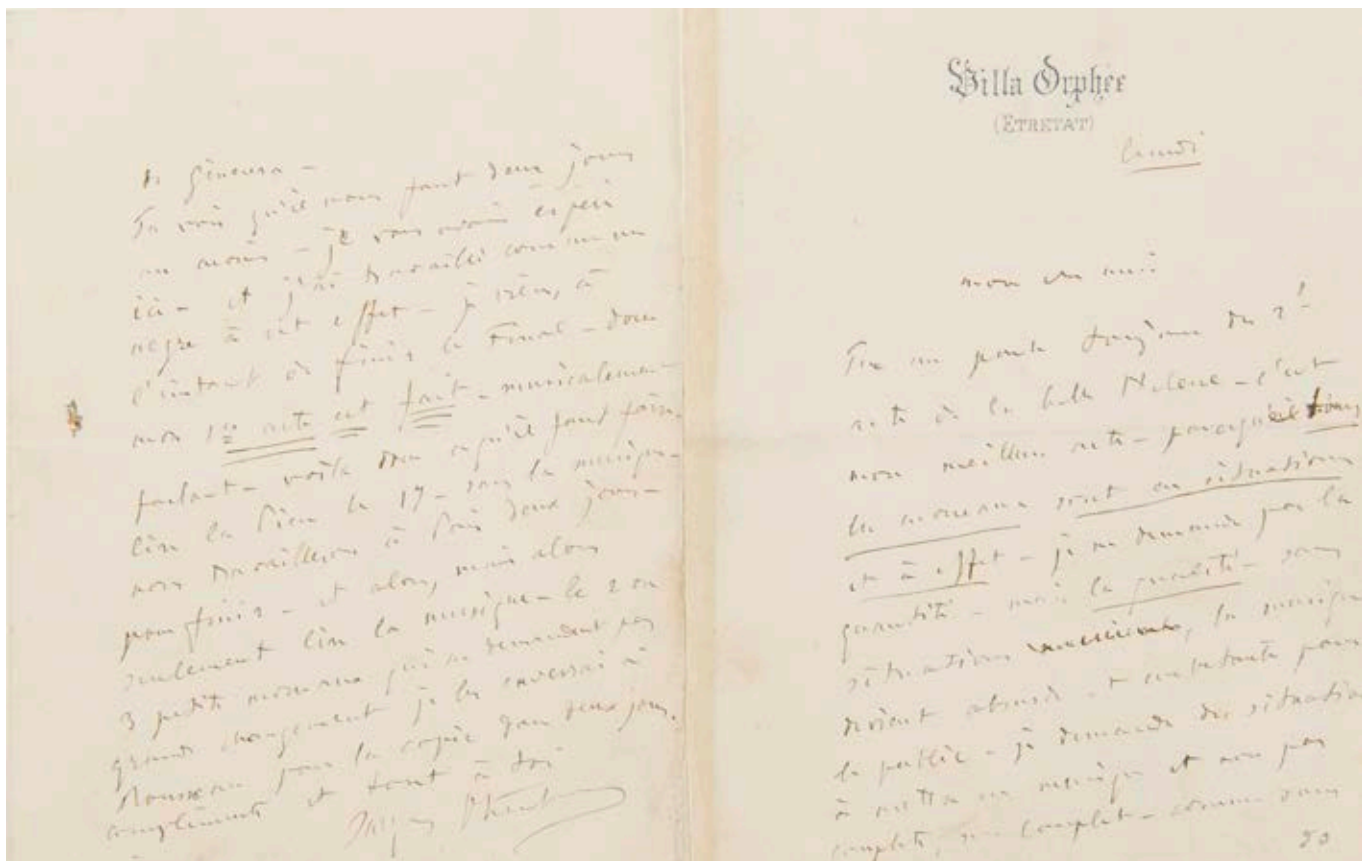 de Ginevra –
Tu vois qu'il nous faut deux jours
au moins – je vous avais espéré
ici – et j'ai travaillé comme un
nègre à cet effet – je viens, à
l'instant de finir le Final – donc
mon 1er acte est fait – musicalement
parlant – voilà donc ce qu'il faut faire.
lire la pièce le 17 – sans la musique –
nous travaillerons à Paris deux jours –
pour finir – et alors, mais alors
seulement lire la musique – le 2 ou
3 petits morceaux qui ne demandent pas
grands changement je les enverrai à
Rousseau pour la copie dans deux jours.
compliments et tout à toi
Jacques Offenbach
Villa Orphée
(ETRETAT)
lundi
mon cher ami
Tu me parles toujours du 2d
acte de la belle Hélène – c'est
mon meilleur acte – parce que tous
les morceaux sont en situations
et à effet – je ne demande pas la
quantité – mais la qualité – sans
situations, la musique
devient absurde et embêtante pour
le public – je demande des situations
à mettre en musique et non pas
couplets, sur couplets – comme dans